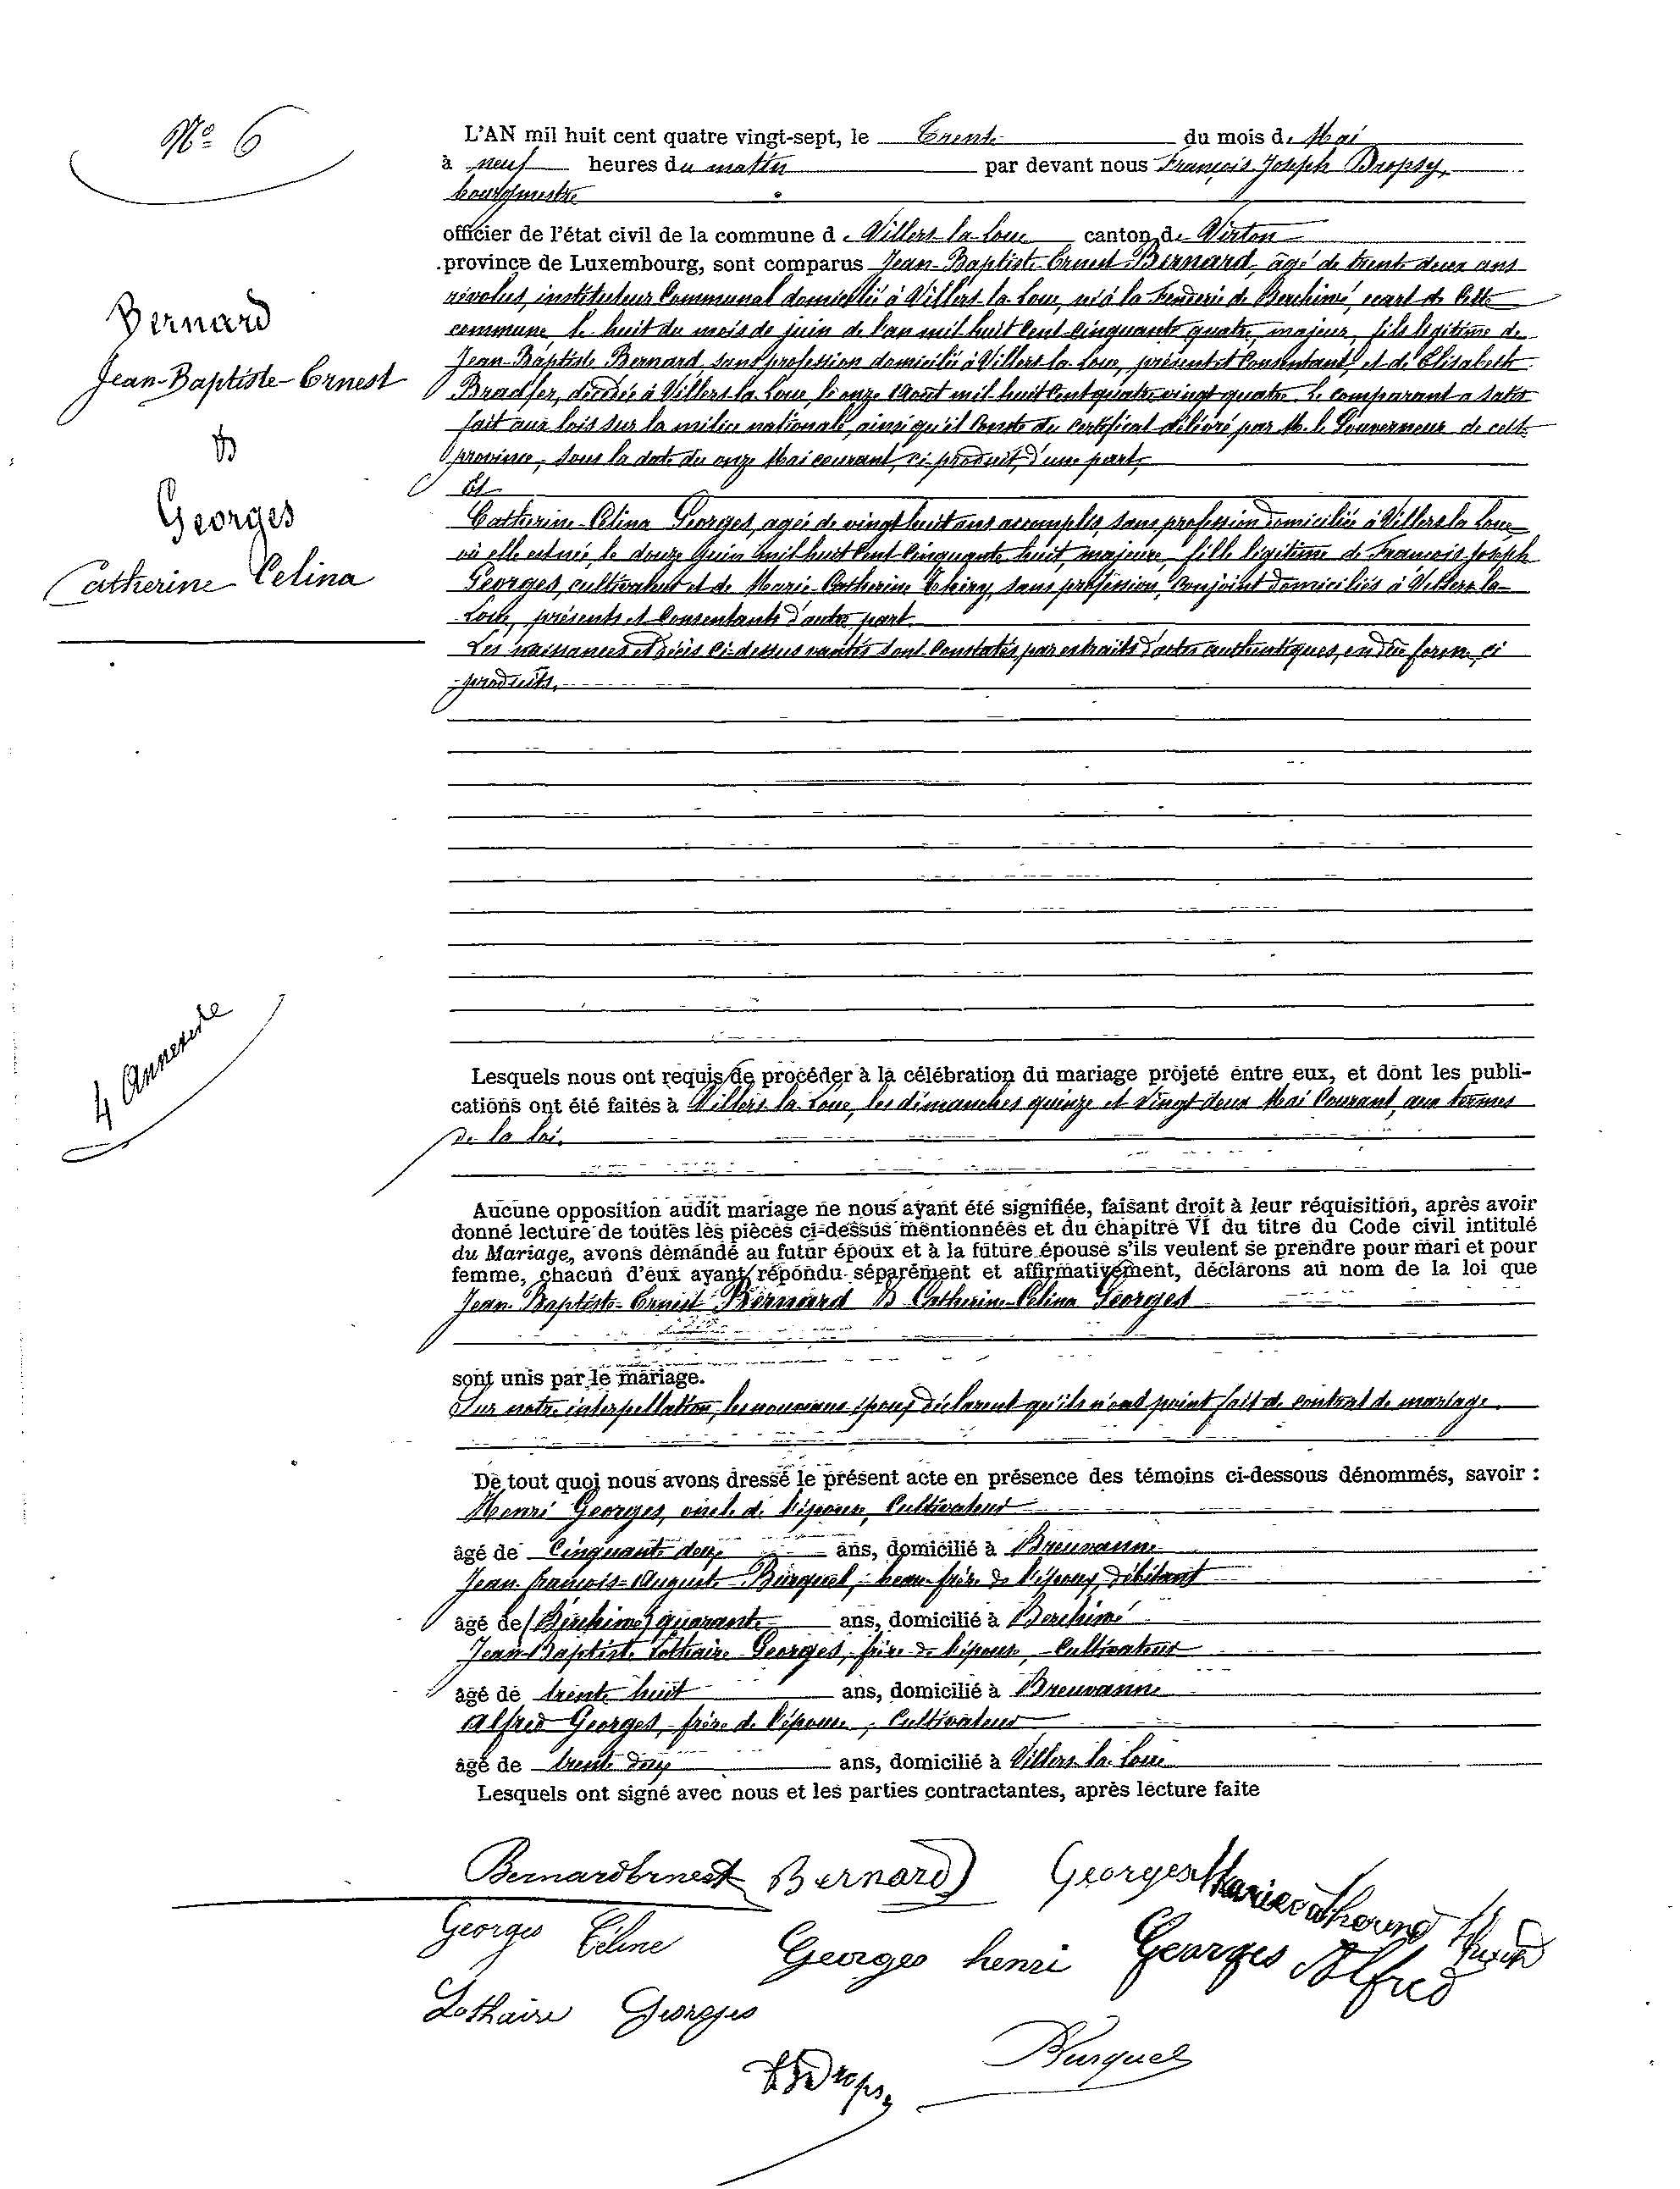 N° 6
Bernard
Jean-Baptiste-Ernest
&
Georges
Catherine Celina
4 Annexes
L'AN mil huit cent quatre vingt-sept, le Trente du mois de Mai
à neuf heures du matin par devant nous François Joseph Dropsy,
bourgmestre
officier de l'état civil de la commune de Villers-la-Loue canton de Virton
province de Luxembourg, sont comparus Jean-Baptiste-Ernest Bernard, âgé de trente deux ans
révolus, instituteur communal domicilié à Villers-la-Loue, né à la Fenderie de Berchiwé, écart de cette
commune, le huit du mois de juin de l'an mil huit cent cinquante quatre, majeur, fils légitime de
Jean-Baptiste Bernard, sans profession domicilié à Villers-la-Loue, présent et consentant, et de Elisabeth
Bradfer, décédée à Villers-la-Loue, le onze Août mil huit cent quatre-vingt quatre. Le comparant a satis
fait aux lois sur la milice nationale, ainsi qu'il conste du certificat délivré par M. le Gouverneur de cette
province, sous la date du onze Mai courant, ci-produit, d'une part,
Et
Catherine-Celina Georges, agée de vingt huit ans accomplis, sans profession domiciliée à Villers la Loue
où elle est née, le douze Juin mil huit cent cinquante huit, majeure, fille légitime de François-Joseph
Georges, cultivateur et de Marie-Catherine Thiry, sans profession, conjoint domiciliés à Villers-la-
Loue, présents et consentants d'autre part.
Les naissances et décès ci-dessus vantés sont constatés par extraits d'actes authentiques, en due forme, ci
produits.
Lesquels nous ont requis de procéder à la célébration du mariage projeté entre eux, et dont les publi-
cations ont été faites à Villers-la-Loue, les dimanches quinze et vingt deux Mai courant, aux termes
de la loi.
Aucune opposition audit mariage ne nous ayant été signifiée, faisant droit à leur réquisition, après avoir
donné lecture de toutes les pièces ci-dessus mentionnées et du chapitre VI du titre du Code civil intitulé
du Mariage, avons demandé au futur époux et à la future épouse s'ils veulent se prendre pour mari et pour
femme, chacun d'eux ayant répondu séparément et affirmativement, déclarons au nom de la loi que
Jean-Baptiste-Ernest Bernard & Catherine-Celina Georges
sont unis par le mariage.
Sur notre interpellation, les nouveaux époux déclarent qu'ils n'ont point fait de contrat de mariage.
De tout quoi nous avons dressé le présent acte en présence des témoins ci-dessous dénommés, savoir :
Henri Georges, oncle de l'épouse, Cultivateur
âgé de Cinquante deux ans, domicilié à Breuvanne
Jean-François-Auguste Burquel, beau-frère de l'époux, débitant
âgé de (Berchiwé) quarante ans, domicilié à Berchiwé
Jean-Baptiste Lothaire Georges, frère de l'épouse, Cultivateur
âgé de trente huit ans, domicilié à Breuvanne
Alfred Georges, frère de l'épouse, Cultivateur
âgé de trente deux ans, domicilié à Villers-la-Loue
Lesquels ont signé avec nous et les parties contractantes, après lecture faite
Bernard Ernest Bernard Georges Marie catherine
Georges Céline Georges henri Georges Alfred
Lothaire Georges
Burquel
Dropsy